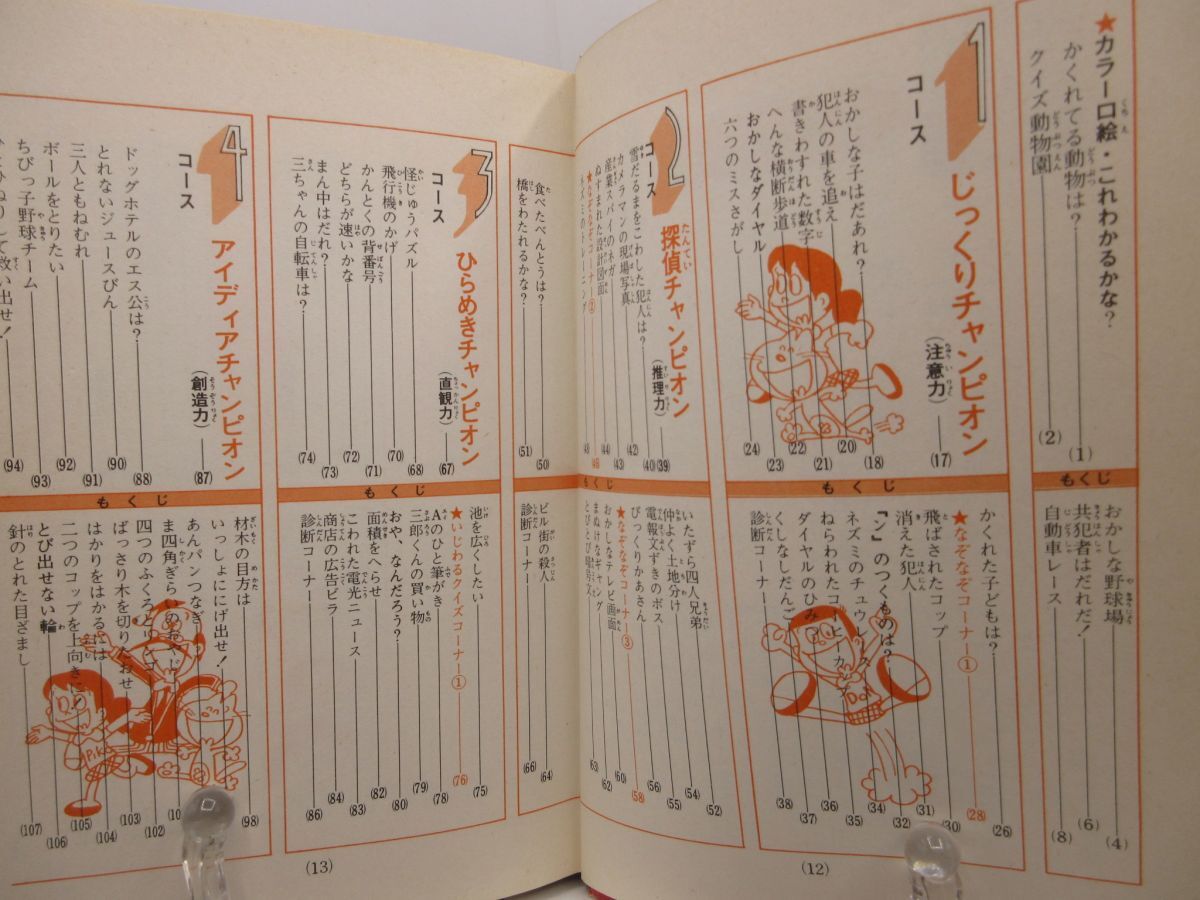 ★カラー口絵・これわかるかな?
かくれてる動物は? (1)
クイズ動物園 (2)
もくじ
おかしな野球場 (4)
共犯者はだれだ! (6)
自動車レース (8)
1
コース
じっくりチャンピオン
(注意力) (17)
おかしな子はだあれ? (18)
犯人の車を追え (20)
書きわすれた数字 (21)
へんな横断歩道 (22)
おかしなダイヤル (23)
六つのミスさがし (24)
もくじ
かくれた子どもは? (26)
★なぞなぞコーナー① (28)
飛ばされたコップ (30)
消えた犯人 (31)
「ン」のつくものは? (32)
ネズミのチュウレース (34)
ねらわれたコーヒーカップ (35)
ダイヤルのひみつ (36)
くしなしだんご (37)
診断コーナー (38)
2
コース
探偵チャンピオン
(推理力) (39)
雪だるまをこわした犯人は? (40)
カメラマンの現場写真 (42)
産業スパイのネガ (43)
ぬすまれた設計図面 (44)
★なぞなぞコーナー② (46)
もくじ
いたずら四人兄弟 (52)
仲よく土地分け (54)
電報文ずきのボス (55)
びっくりかあさん (56)
★なぞなぞコーナー③ (58)
おかしなテレビ画面 (60)
まぬけなギャング (62)
とびとび暗号文 (63)
(12)
食べたべんとうは? (50)
橋をわたれるかな? (51)
ビル街の殺人 (64)
診断コーナー (66)
3
コース
ひらめきチャンピオン
(直観力) (67)
怪じゅうパズル (68)
飛行機のかげ (70)
かんとくの背番号 (71)
どちらが速いかな (72)
まん中はだれ? (73)
三ちゃんの自転車は? (74)
もくじ
池を広くしたい (75)
★いじわるクイズコーナー① (76)
Aのひと筆がき (78)
三郎くんの買い物 (79)
おや、なんだろう? (80)
面積をへらせ (82)
こわれた電光ニュース (83)
商店の広告ビラ (84)
診断コーナー (86)
4
コース
アイディアチャンピオン
(創造力) (87)
ドッグホテルのエス公は? (88)
とれないジュースびん (90)
三人ともねむれ (91)
ボールをとりたい (92)
ちびっ子野球チーム (93)
(94)
もくじ
材木の目方は (98)
いっしょににげ出せ!
あんパンつなぎ
ま四角ぎらいのおやじ (102)
四つのふくろとリンゴ (103)
ばっさり木を切りたおせ (104)
はかりをはかるには (105)
二つのコップを上向きに!
とび出せない輪 (106)
針のとれた目ざまし (107)
(13)